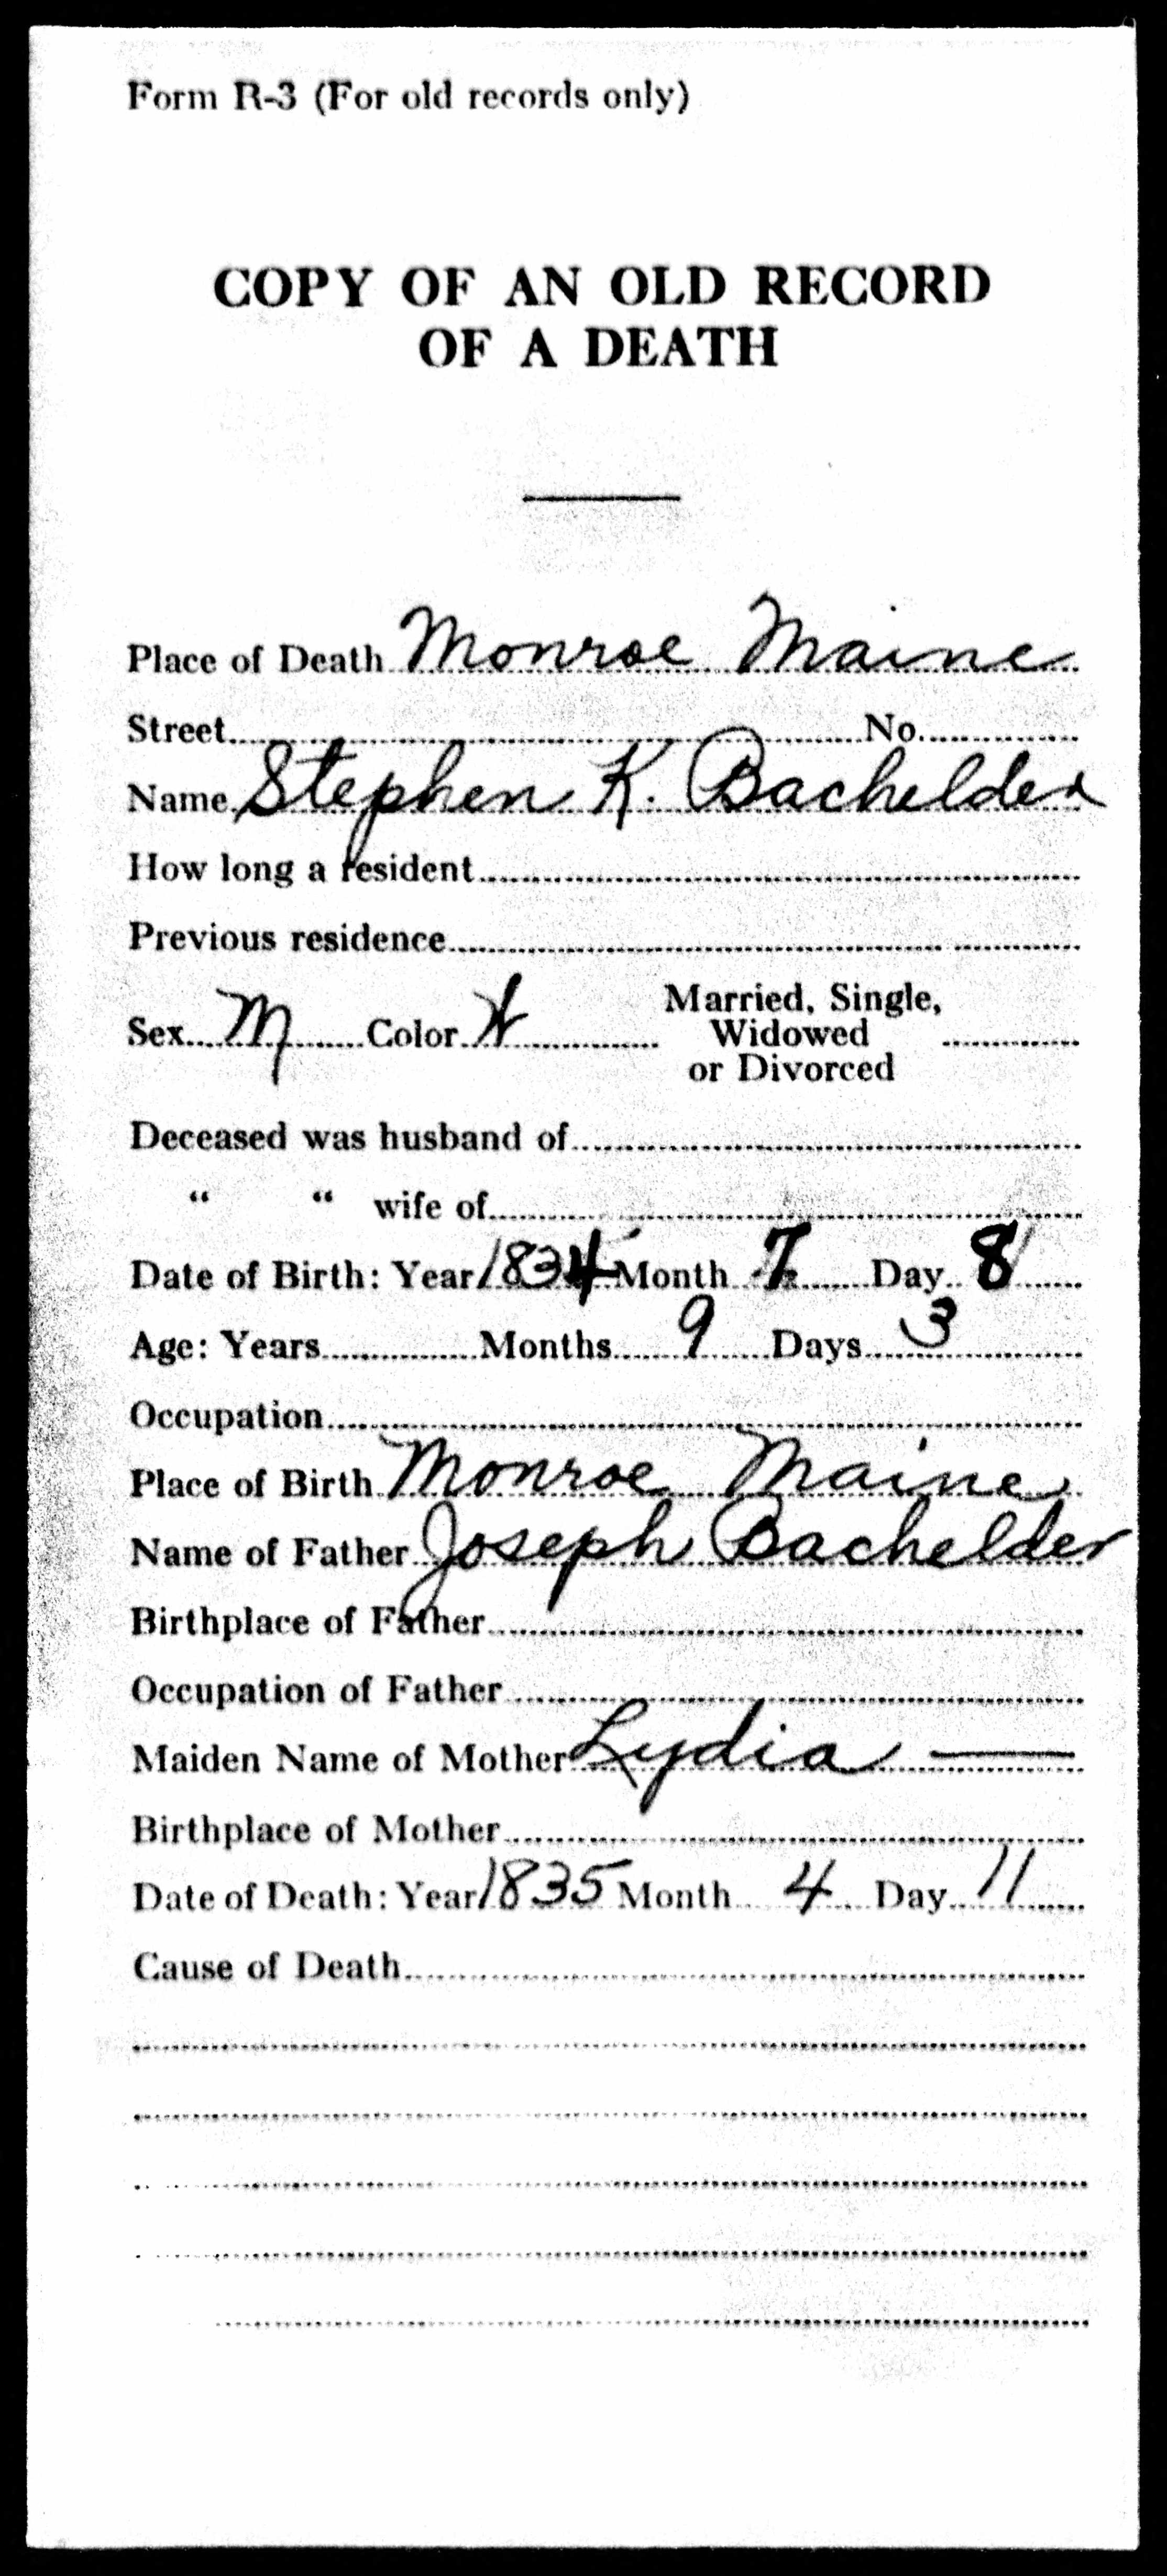 Form R-3 (For old records only)
COPY OF AN OLD RECORD
OF A DEATH
Place of Death Monroe Maine
Street No.
Name Stephen K. Bachelder
How long a resident
Previous residence
Sex M Color W Married, Single,
Widowed
or Divorced
Deceased was husband of
“ “ wife of
Date of Birth: Year 1834 Month 7 Day 8
Age: Years Months 9 Days 3
Occupation
Place of Birth Monroe Maine
Name of Father Joseph Bachelder
Birthplace of Father
Occupation of Father
Maiden Name of Mother Lydia —
Birthplace of Mother
Date of Death: Year 1835 Month 4 Day 11
Cause of Death